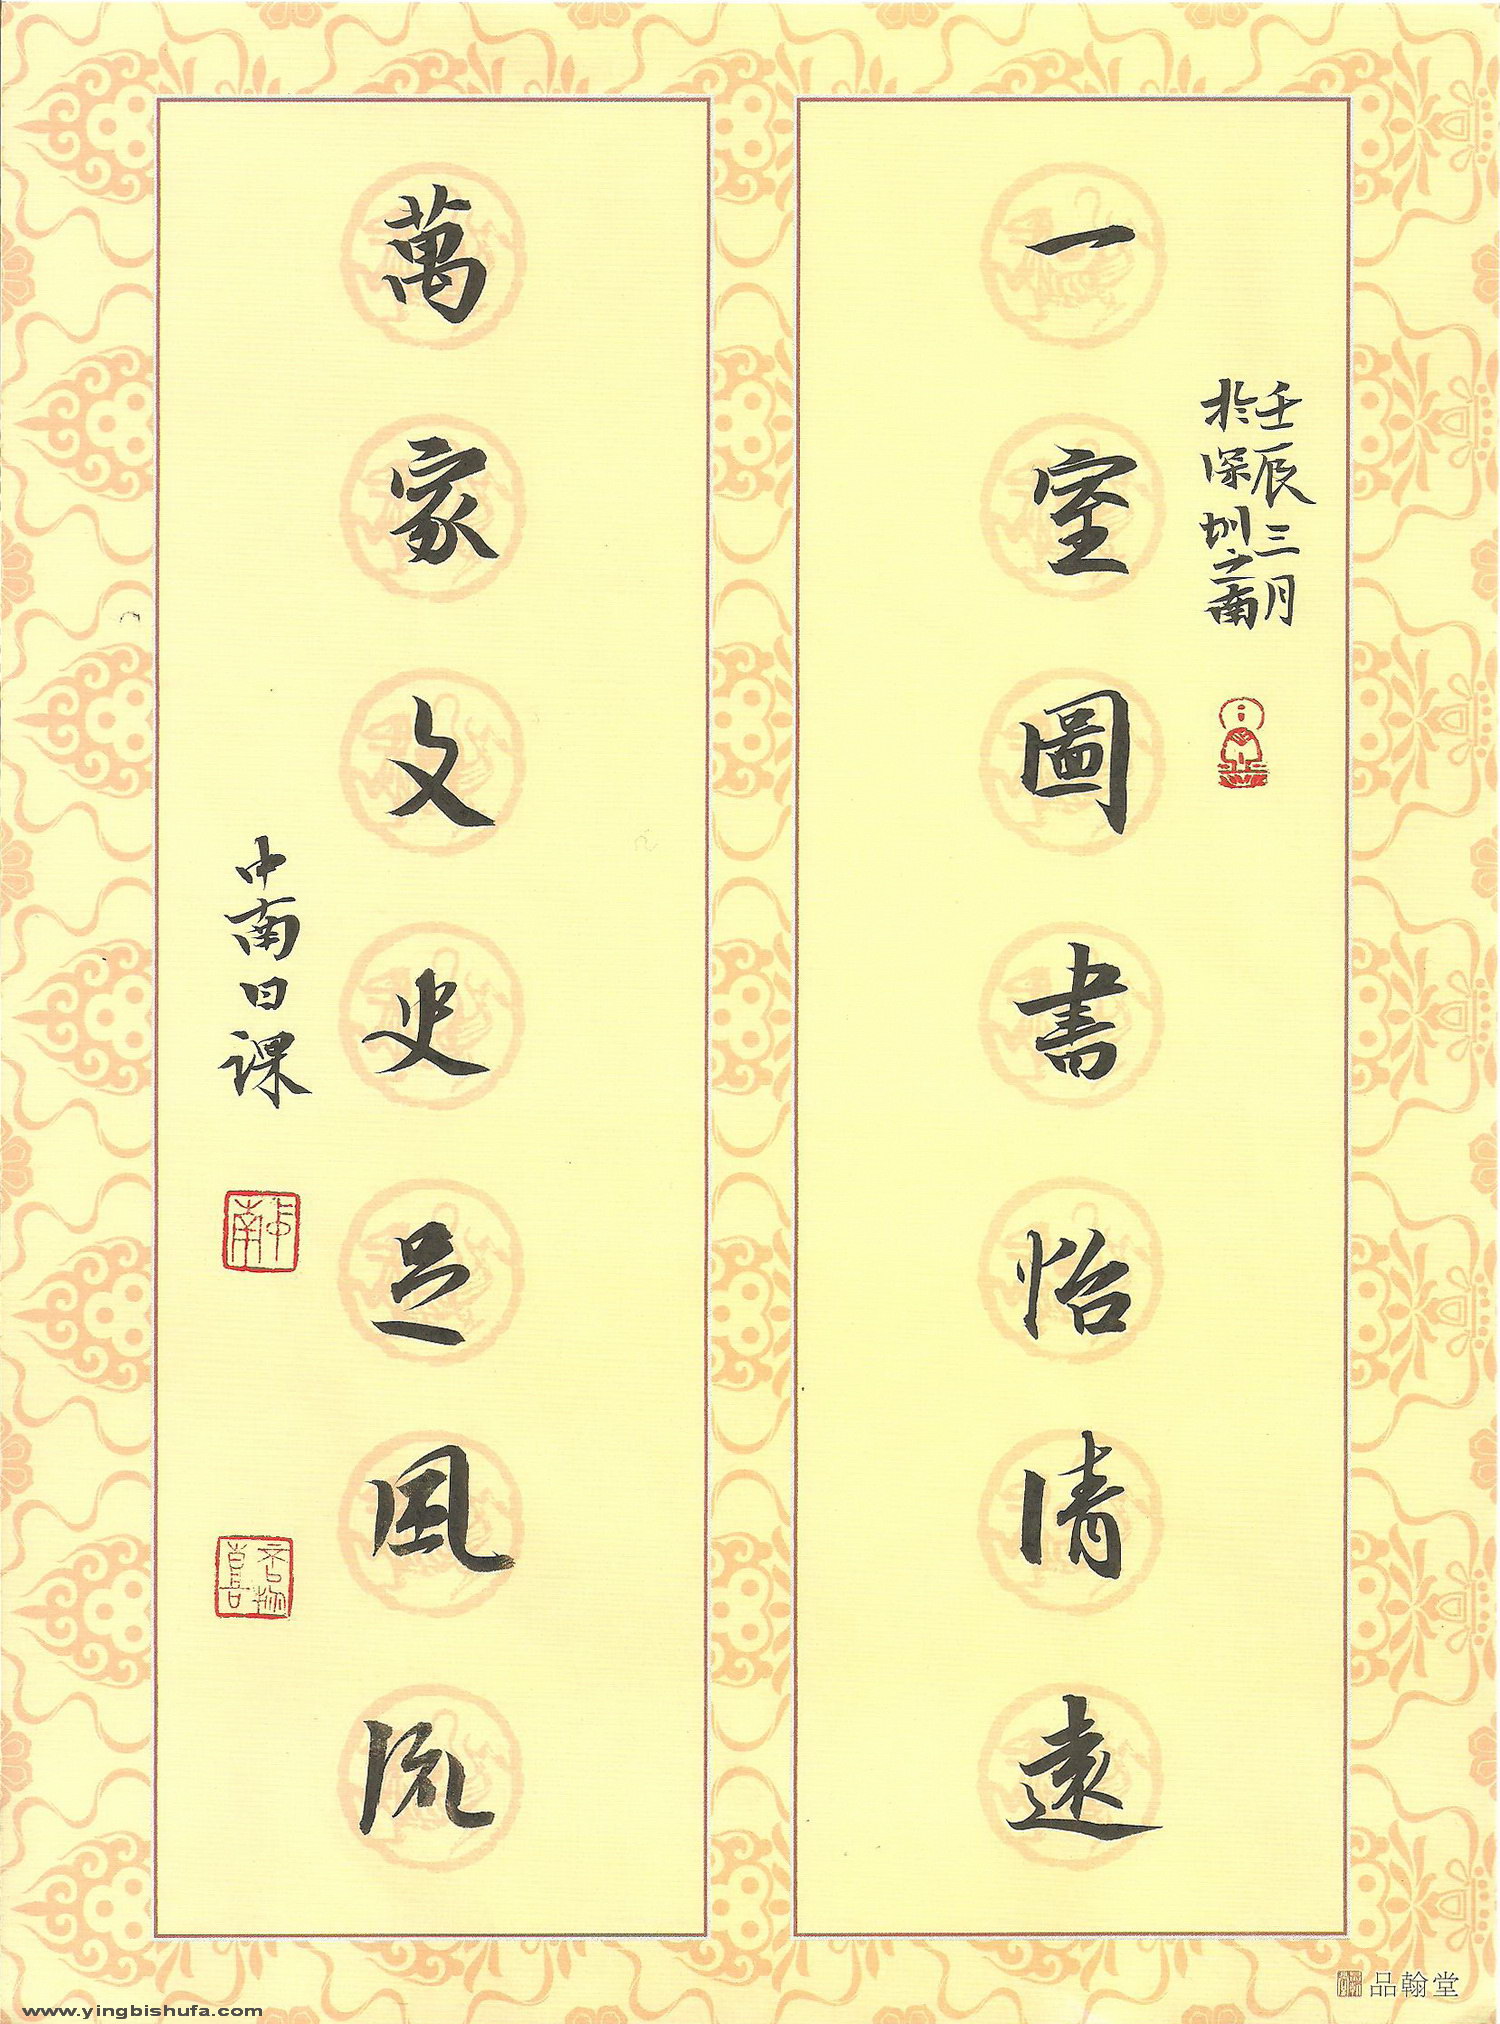 一室圖書怡清遠
壬辰三月
於深圳之南
萬家文史足風流
中南日課
品翰堂
www.yingbishufa.com